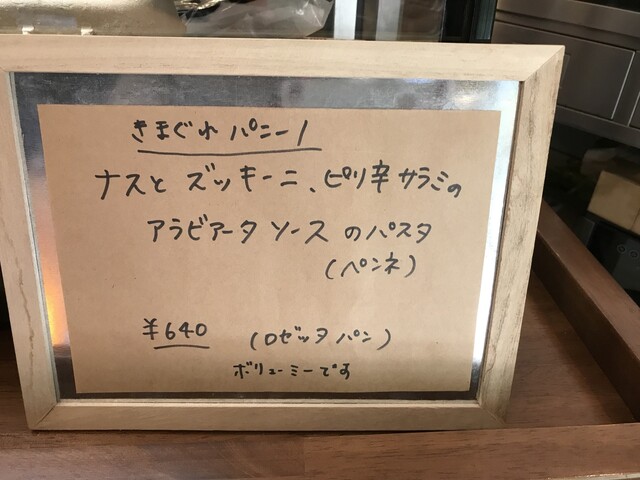 きまぐれパニーノ
ナスとズッキーニ、ピリ辛サラミの
アラビアータソースのパスタ
(ペンネ)
¥640 (ロゼッタパン)
ボリューミーです